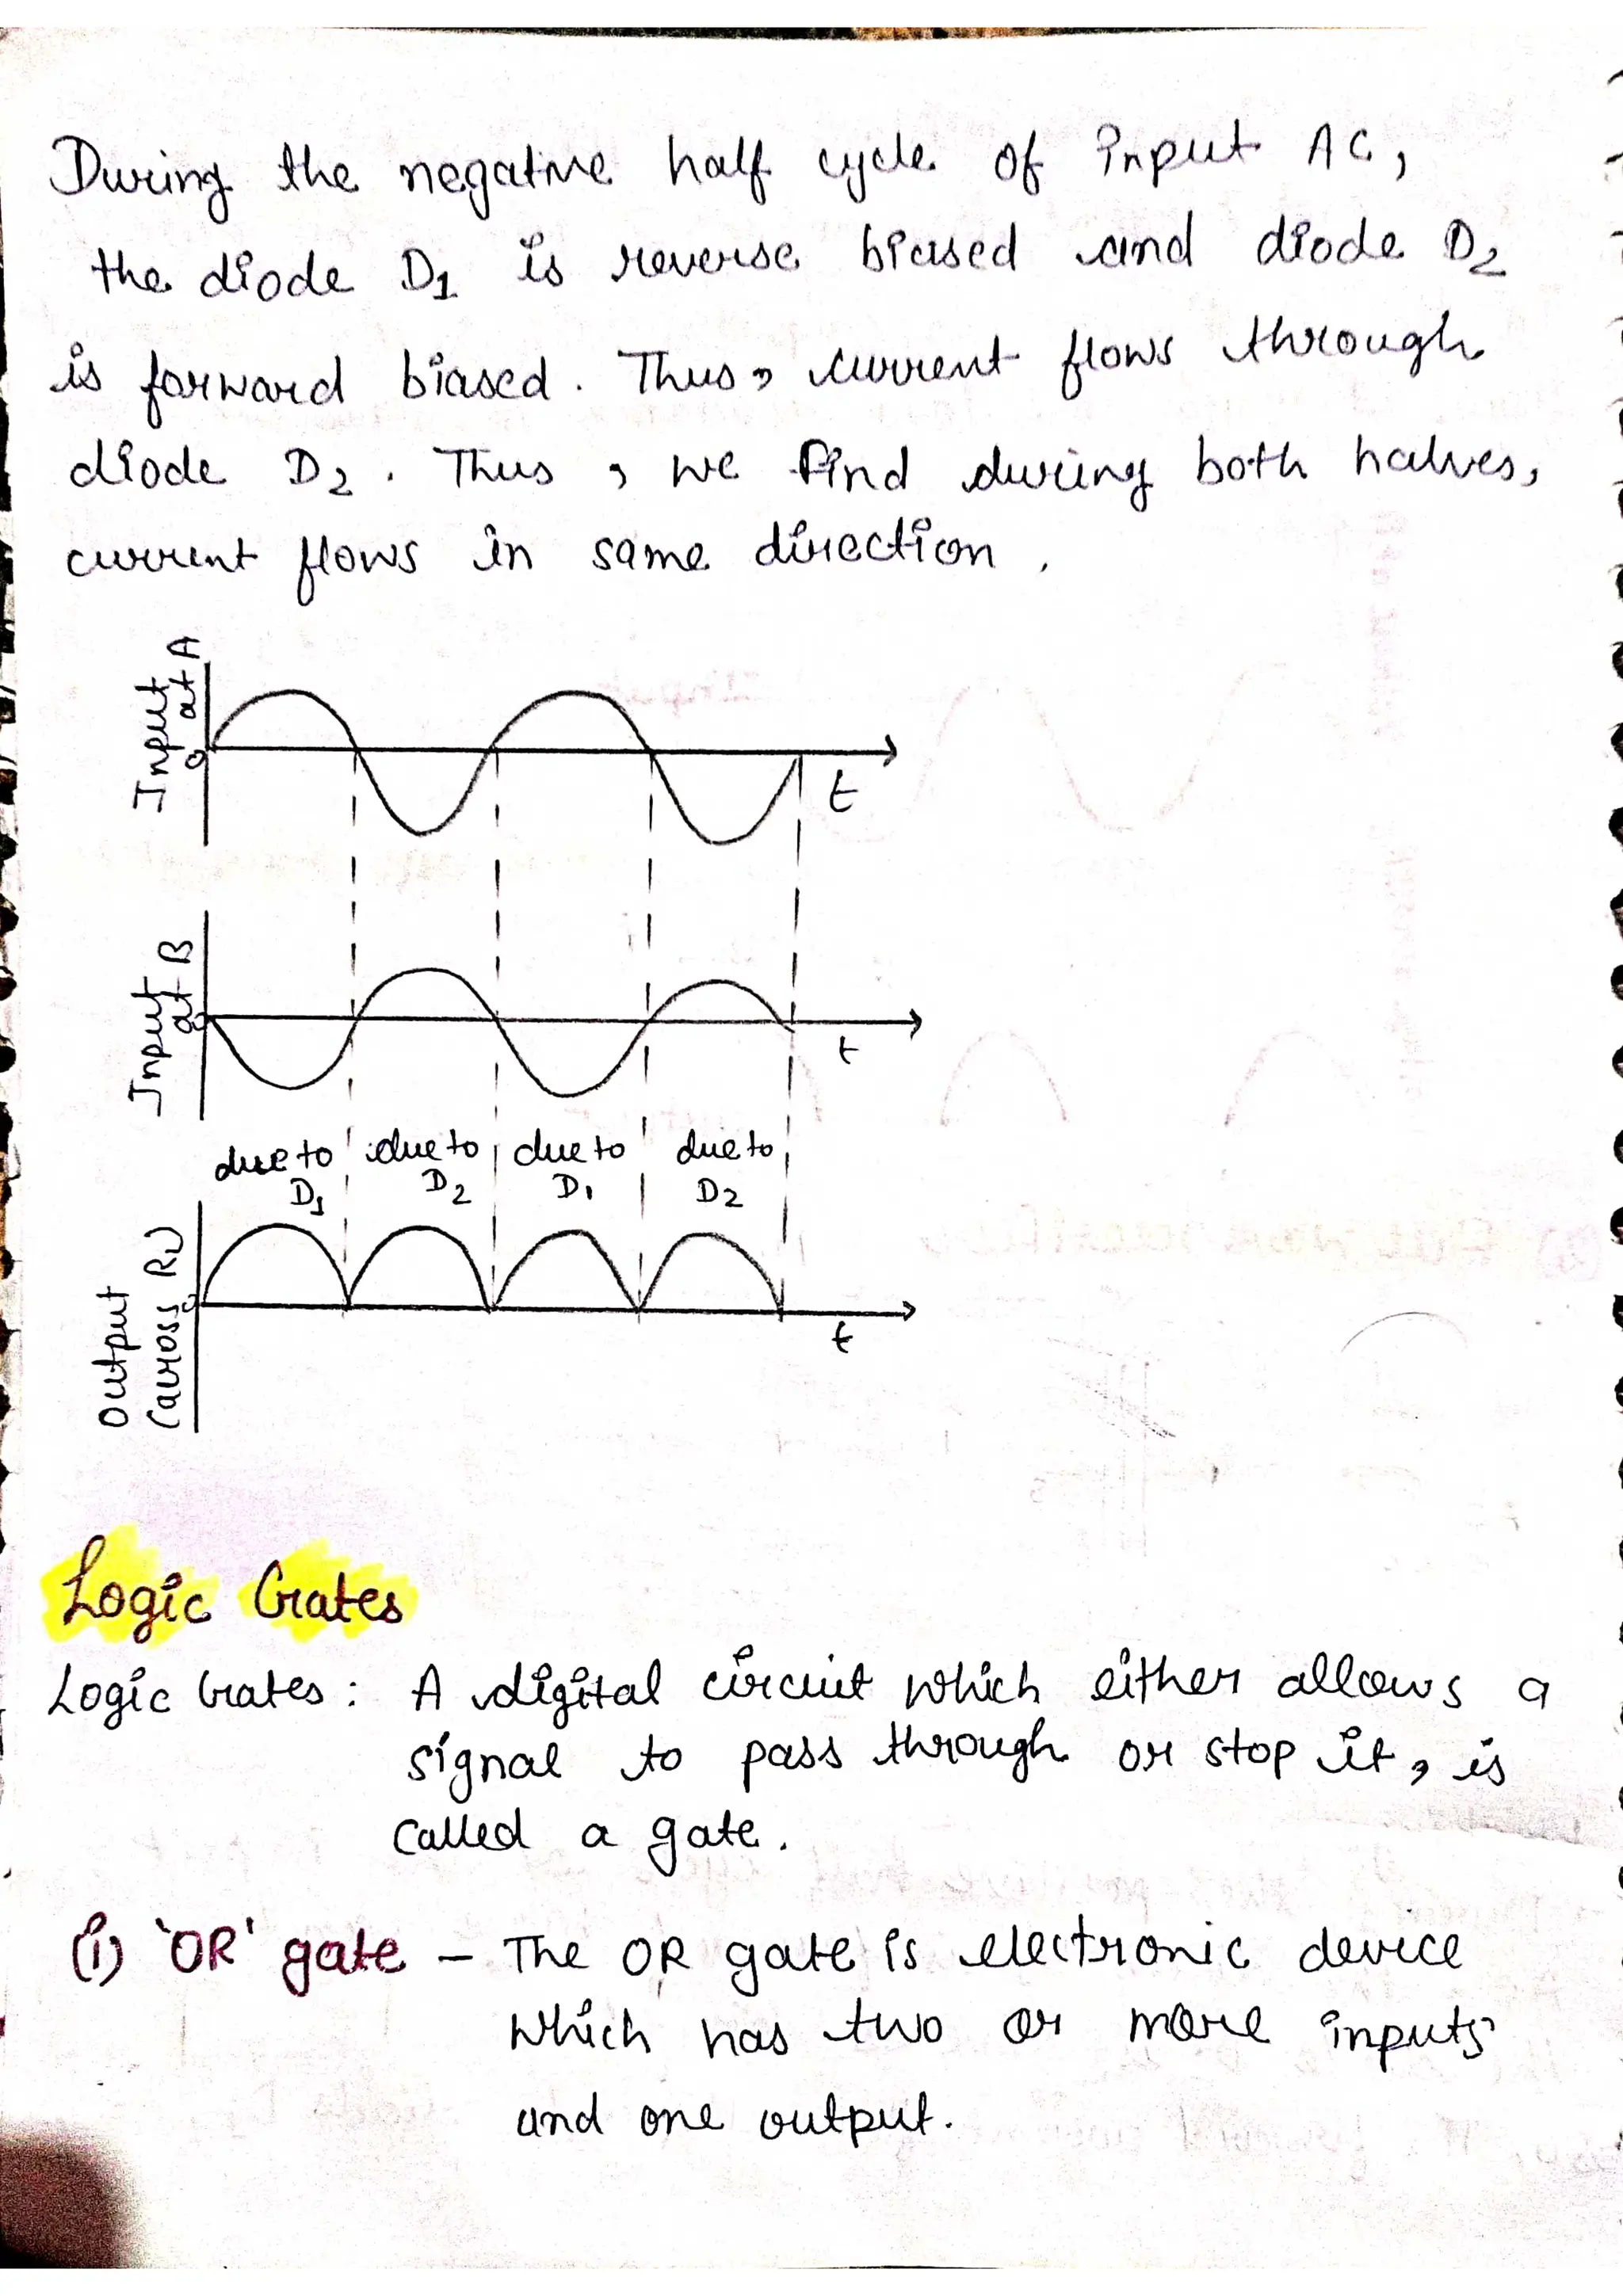 During the negative half cycle of input AC,
the diode D₁ is reverse biased and diode D₂
is forward biased. Thus, current flows through
diode D₂. Thus, we find during both halves,
current flows in same direction.
Input
at A
0
t
Input
at B
0
t
due to due to due to due to
D₁ D₂ D₁ D₂
Output
(across RL)
0
t
Logic Gates
Logic Gates: A digital circuit which either allows a
signal to pass through or stop it, is
called a gate.
(i) 'OR' gate - The OR gate is electronic device
which has two or more inputs
and one output.